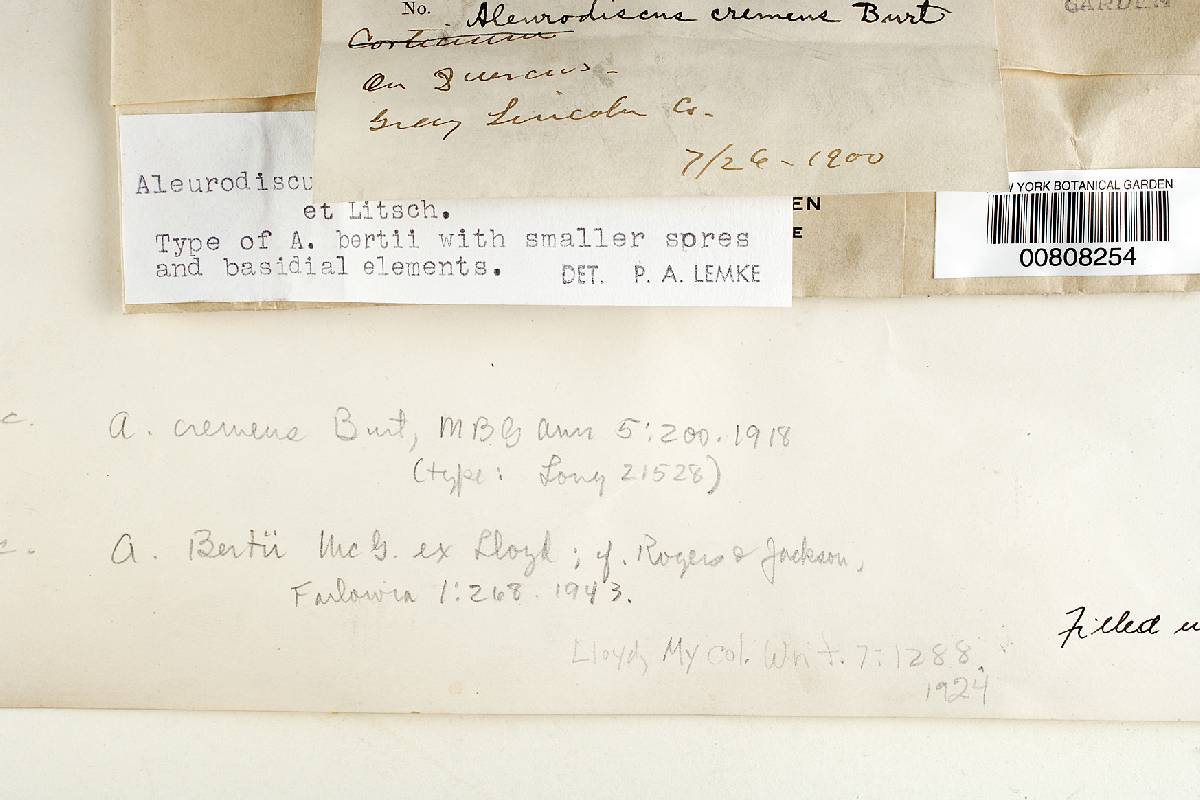 No. Aleurodiscus cremens Burt
Corticium
On Quercus -
Gray Lincoln Co.
7/26 - 1900
GARDEN
Aleurodiscu
et Litsch.
Type of A. bertii with smaller spres
and basidial elements.
DET. P. A. LEMKE
EN
E
W YORK BOTANICAL GARDEN
00808254
c. A. cremens Burt, MBG Ann 5:200. 1918
(type: Long 21528)
c. A. Bertii McG. ex Lloyd; cf. Rogers & Jackson,
Farlowia 1:268. 1943.
Lloyd, Mycol. Writ. 7:1288.
1924
Filled